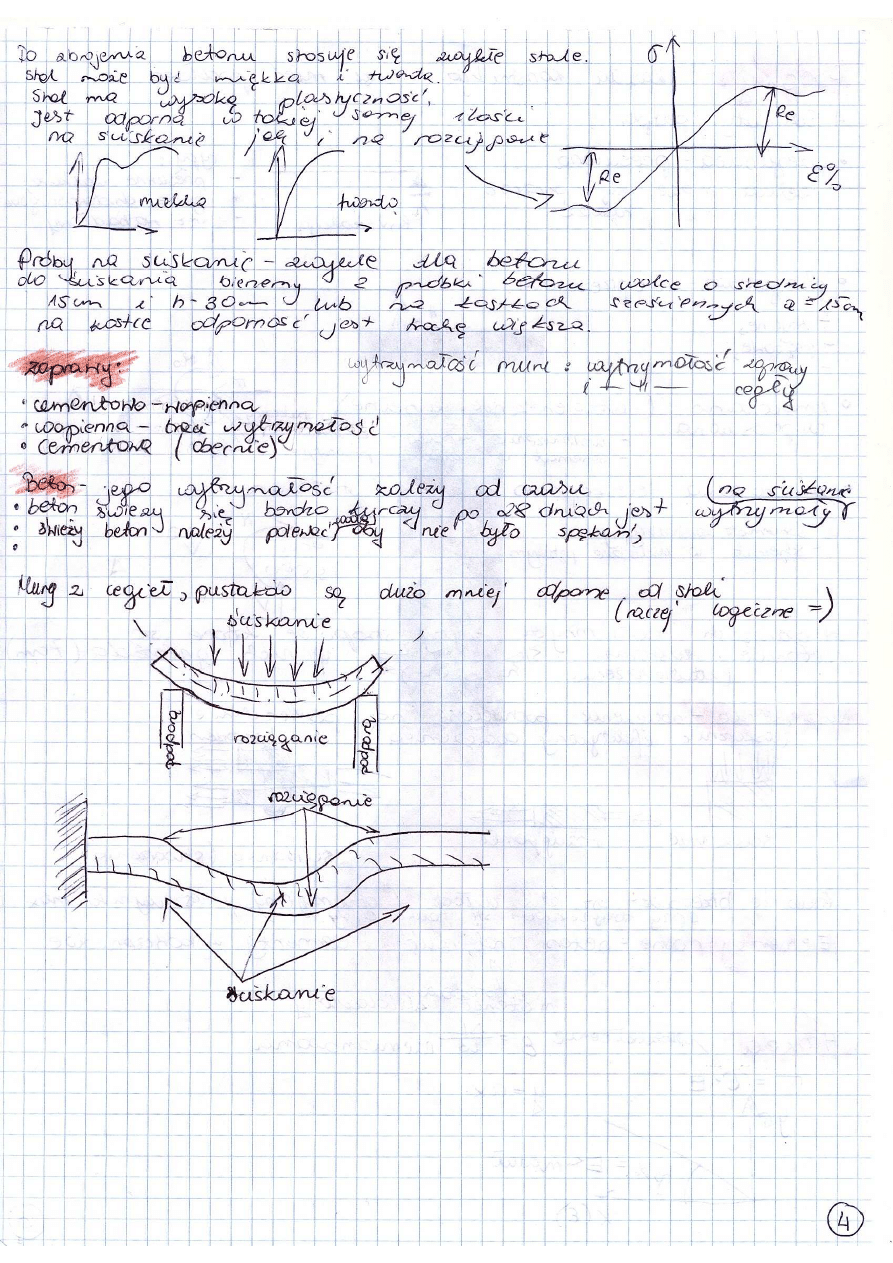 Do zbrojenia betonu stosuje się zwykłe stale.
stal może być miękka i twarda.
Stal ma wysoką plastyczność.
jest odporna w takiej samej ilości
na ściskanie jak i na rozciąganie
σ
Re
Re
ε%
miękka
twarda
Próby na ściskanie - zwykle dla betonu
do ściskania bierzemy z próbki betonu walce o średnicy
15cm i h-30cm lub na kostkach sześciennych a=15cm
na kostce odporność jest trochę większa.
zaprawy:
wytrzymałość muru : wytrzymałość zaprawy
i —〃— cegły
• cementowo-wapienna
• wapienna - traci wytrzymałość
• cementowa (obecnie)
Beton - jego wytrzymałość zależy od czasu
(na ściskanie
• beton świeży się bardzo kurczy po 28 dniach jest wytrzymały
• świeży beton należy polewać wodą aby nie było spękań,
•
Mury z cegieł, pustaków są dużo mniej odporne od stali
(raczej logiczne =)
ściskanie
podpora
rozciąganie
podpora
rozciąganie
ściskanie
4